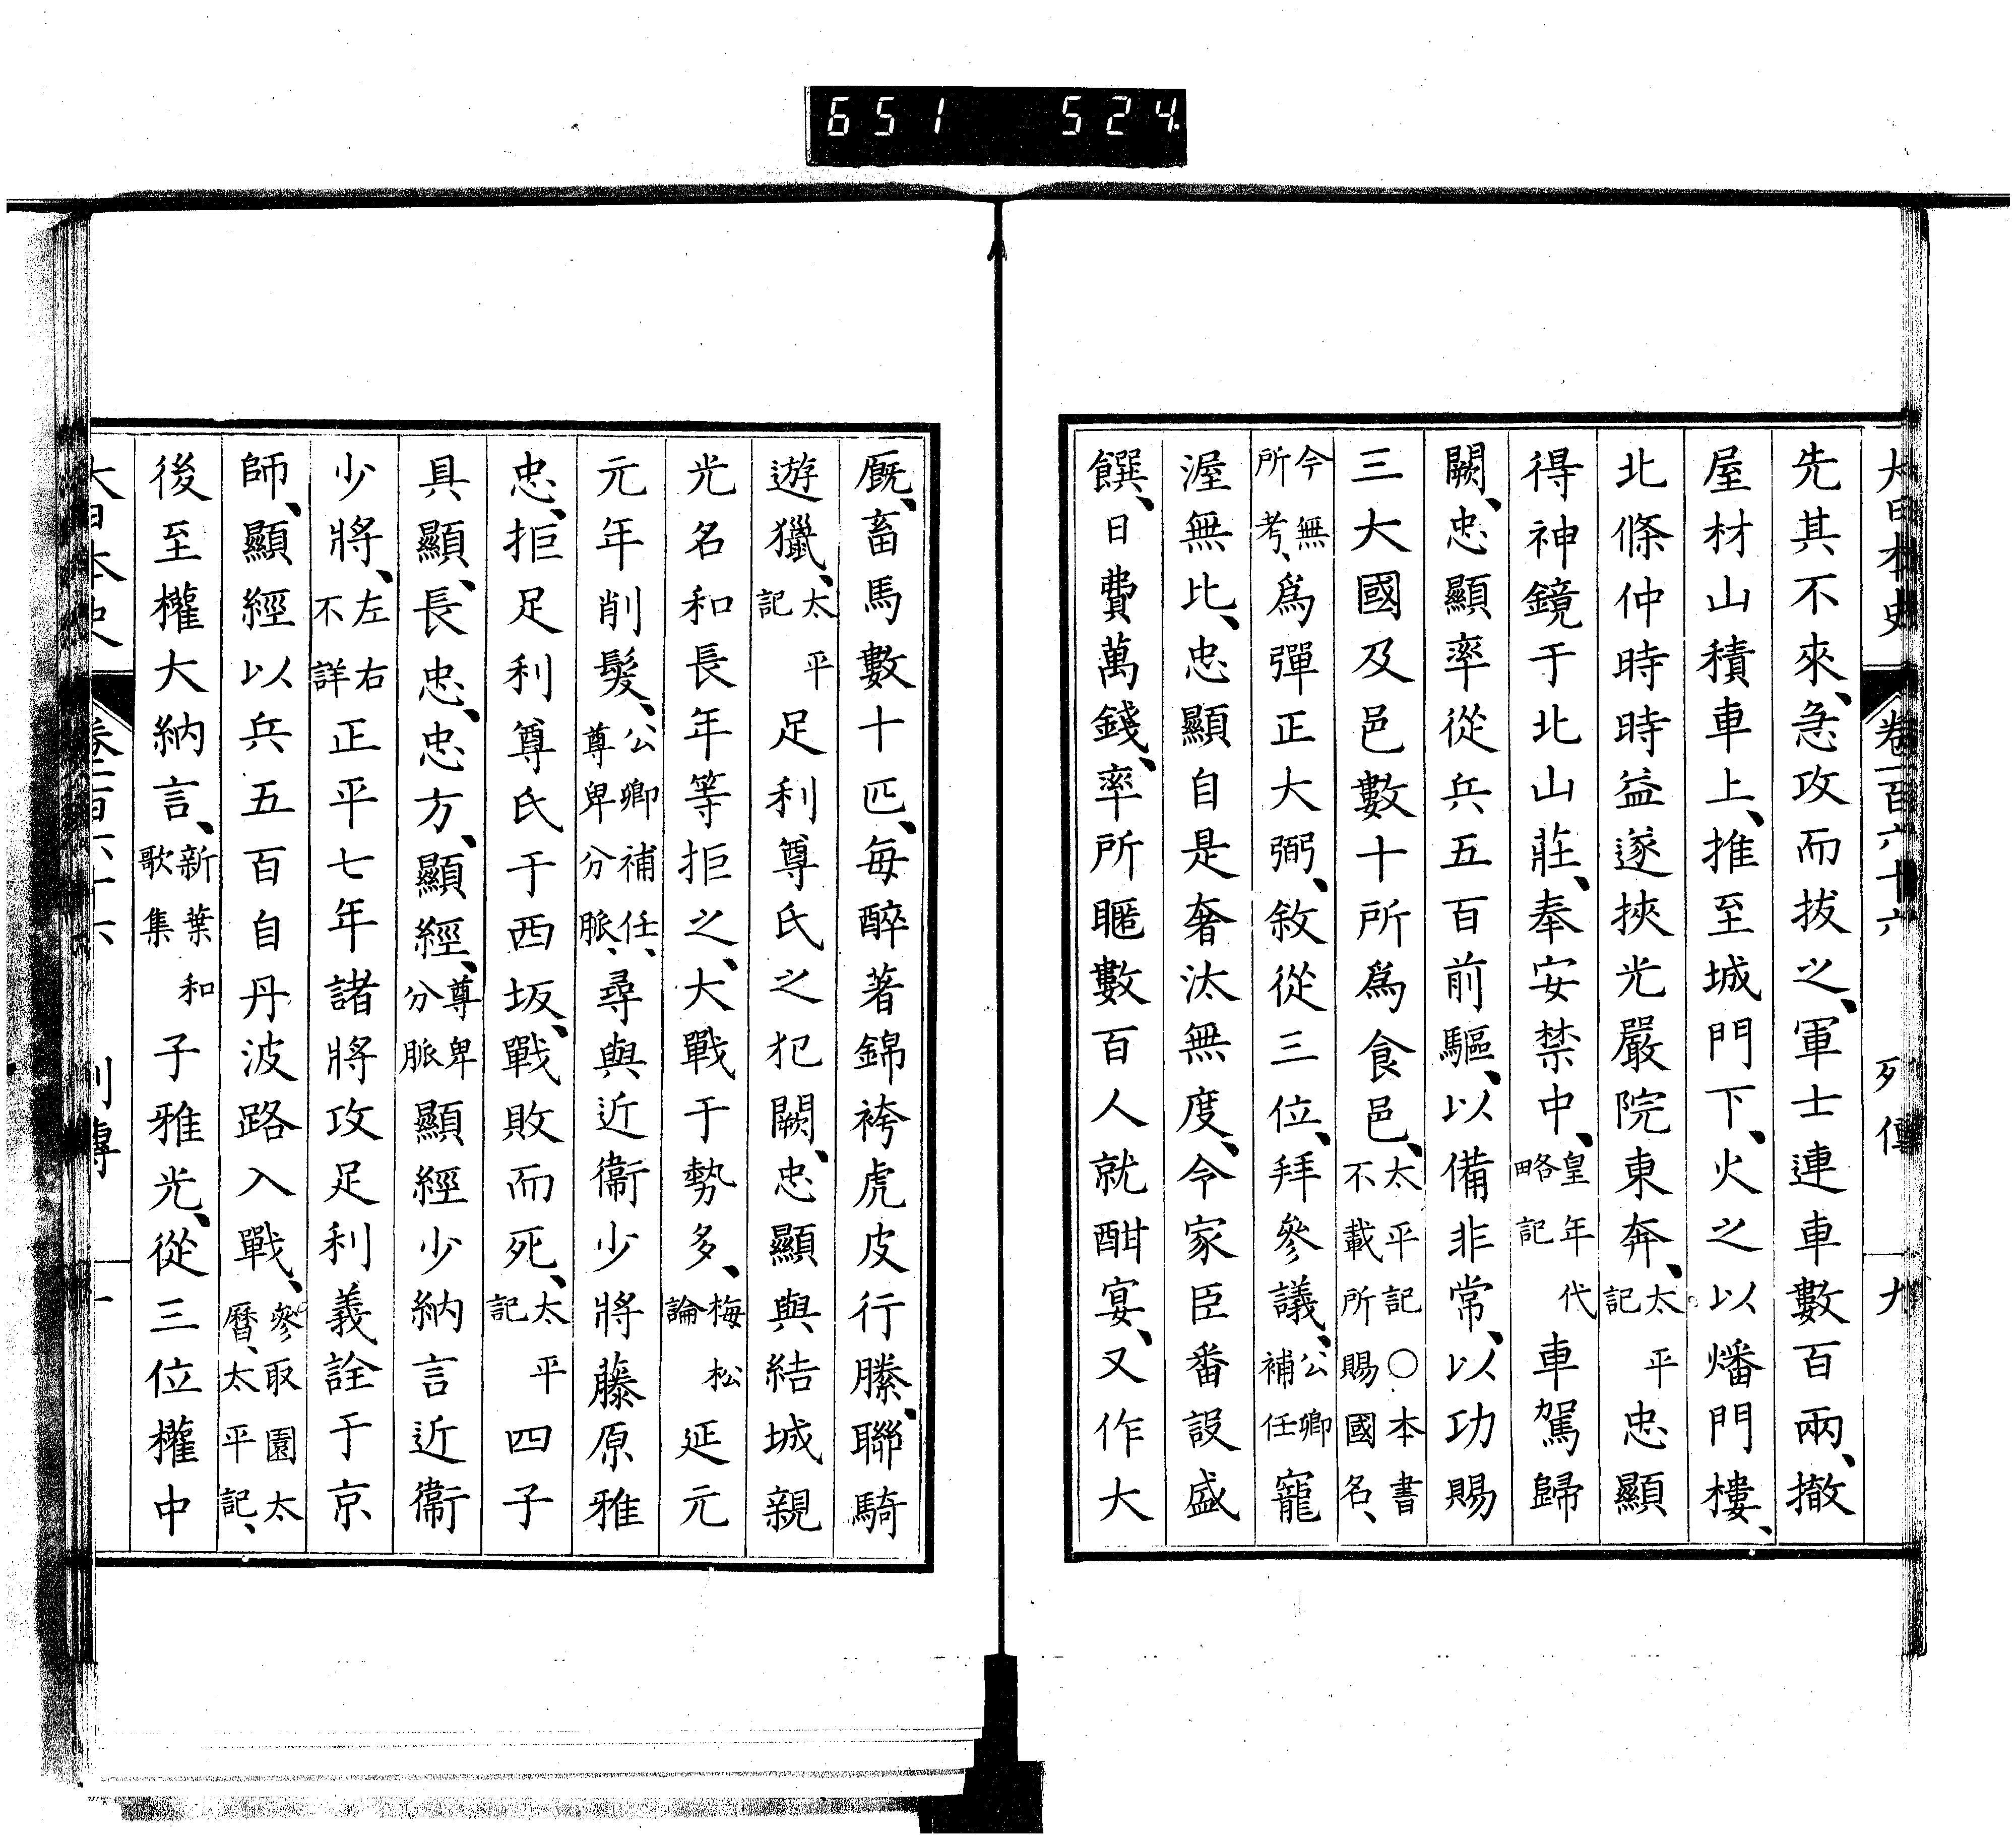 651 524.
大日本史 卷一百六十六 列傳 九
先其不來、急攻而拔之、軍士連車數百兩、撤
屋材山積車上、推至城門下、火之以燔門樓、
北條仲時時益遂挾光嚴院東奔、太平記忠顯
得神鏡于北山莊、奉安禁中、皇年代略記車駕歸
闕、忠顯率從兵五百前驅、以備非常、以功賜
三大國及邑數十所爲食邑、太平記○本書不載所賜國名、
今無所考、爲彈正大弼、敘從三位、拜參議、公卿補任寵
渥無比、忠顯自是奢汰無度、令家臣番設盛
饌、日費萬錢、率所暱數百人就酣宴、又作大
厩、畜馬數十匹、每醉著錦袴虎皮行縢、聯騎
遊獵、太平記足利尊氏之犯闕、忠顯與結城親
光名和長年等拒之、大戰于勢多、梅松論延元
元年削髮、公卿補任、尊卑分脈、尋與近衞少將藤原雅
忠、拒足利尊氏于西坂、戰敗而死、太平記四子
具顯、長忠、忠方、顯經、尊卑分脈顯經少納言近衞
少將、左右不詳正平七年諸將攻足利義詮于京
師、顯經以兵五百自丹波路入戰、參取園太曆、太平記、
後至權大納言、新葉和歌集子雅光、從三位權中
大日本史 卷一百六十六 列傳 十